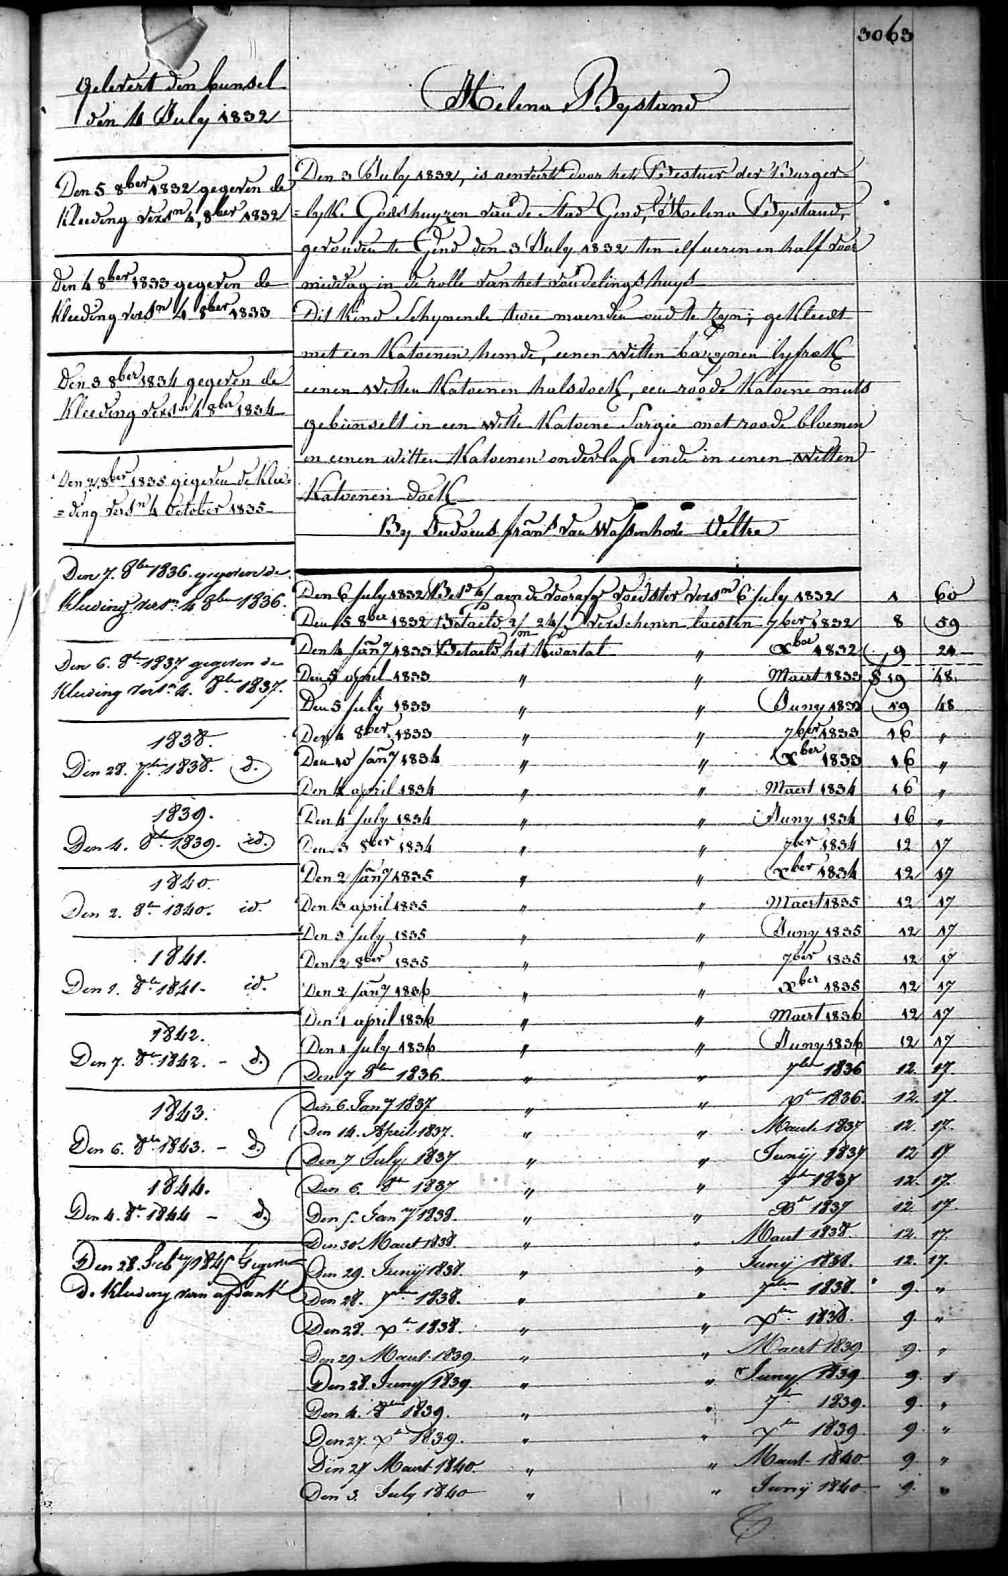 3063
Helena Bystand
gelevert den bunsel
den 4 July 1832
Den 5 8ber 1832 gegeven de
Kleeding versn 4 8ber 1832
den 4 8ber 1833 gegeven de
Kleeding versn 4 8ber 1833
Den 3 8ber 1834 gegeven de
Kleeding versn 4 8ber 1834
Den 2 8ber 1835 gegeven de Klee=
=ding versn 4 October 1835
Den 7. 8ber 1836 gegeven de
Kleeding versn 4 8ber 1836.
Den 6. 8br 1837 gegeven de
Kleeding versn 4. 8br 1837.
1838.
Den 28. 7br 1838. d.
1839.
Den 4. 8br 1839. id.
1840.
Den 2. 8br 1840. id.
1841.
Den 1. 8br 1841. id.
1842.
Den 7. 8br 1842. - d.
1843.
Den 6. 8br 1843. - d.
1844.
Den 4. 8br 1844 - d.
Den 28. Feby 1845 Gegeven
de Kleeding van
Den 3 July 1832, is aenveert door het Bestuer der Burger=
=lyke Godshuyzen van de Stad Gend, Helena Bystand,
gevonden te Gend den 3 July 1832 ten elf ueren en half voor
middag in de rolle van het vondelings huys
Dit Kind Schynende twee maenden oud te Zyn; gekleed
met een Katoenen hemde, eenen witten bazynen lyfrok
eenen witten Katoenen halsdoek, een roode Katoene muts
gebunselt in een witte Katoene Sargie met roode bloemen
en eenen witten Katoenen onderlap ende in eenen witten
Katoenen doek
By Judocus frans van Wassenhove Veltre
Den 6 July 1832 Bet aen de voedster versn 6 july 1832 1 60
Den 5 8ber 1832 Betaeld verschenen laesten 7ber 1832 8 59
Den 4 Jany 1833 Betaeld het Kwartal " Xber 1832 9 24
Den 5 april 1833 " " Maert 1833 19 48
Den 5 july 1833 " " Juny 1833 19 48
Den 4 8ber 1833 " " 7ber 1833 16 "
Den 10 Jany 1834 " " Xber 1833 16 "
Den 4 april 1834 " " Maert 1834 16 "
Den 4 july 1834 " " Juny 1834 16 "
Den 3 8ber 1834 " " 7ber 1834 12 17
Den 2 Jany 1835 " " Xber 1834 12 17
Den 3 april 1835 " " Maert 1835 12 17
Den 3 july 1835 " " Juny 1835 12 17
Den 2 8ber 1835 " " 7ber 1835 12 17
Den 2 Jany 1836 " " Xber 1835 12 17
Den 1 april 1836 " " Maert 1836 12 17
Den 1 july 1836 " " Juny 1836 12 17
Den 7 8br 1836 " " 7ber 1836 12. 17.
Den 6. Jany 1837 " " Xbr 1836. 12. 17.
Den 14. April 1837. " " Maert 1837 12. 17.
Den 7 July 1837 " " Junij 1837 12 17
Den 6. 8br 1837 " " 7br 1837 12. 17.
Den 5. Jany 1838. " " Xbr 1837 12. 17.
Den 30 Maert 1838. " " Maert 1838. 12. 17.
Den 29. Junij 1838. " " Junij 1838. 12. 17.
Den 28. 7br 1838. " " 7br 1838. 9. "
Den 28. Xbr 1838. " " Xbr 1838. 9. "
Den 29 Maert 1839. " " Maert 1839 9. "
Den 28. Juny 1839 " " Juny 1839 9. "
Den 4. 8br 1839. " " 7br 1839. 9. "
Den 27. Xbr 1839. " " Xbr 1839 9. "
Den 27 Maert 1840. " " Maert 1840 9. "
Den 3. July 1840 " " Junij 1840 9. "